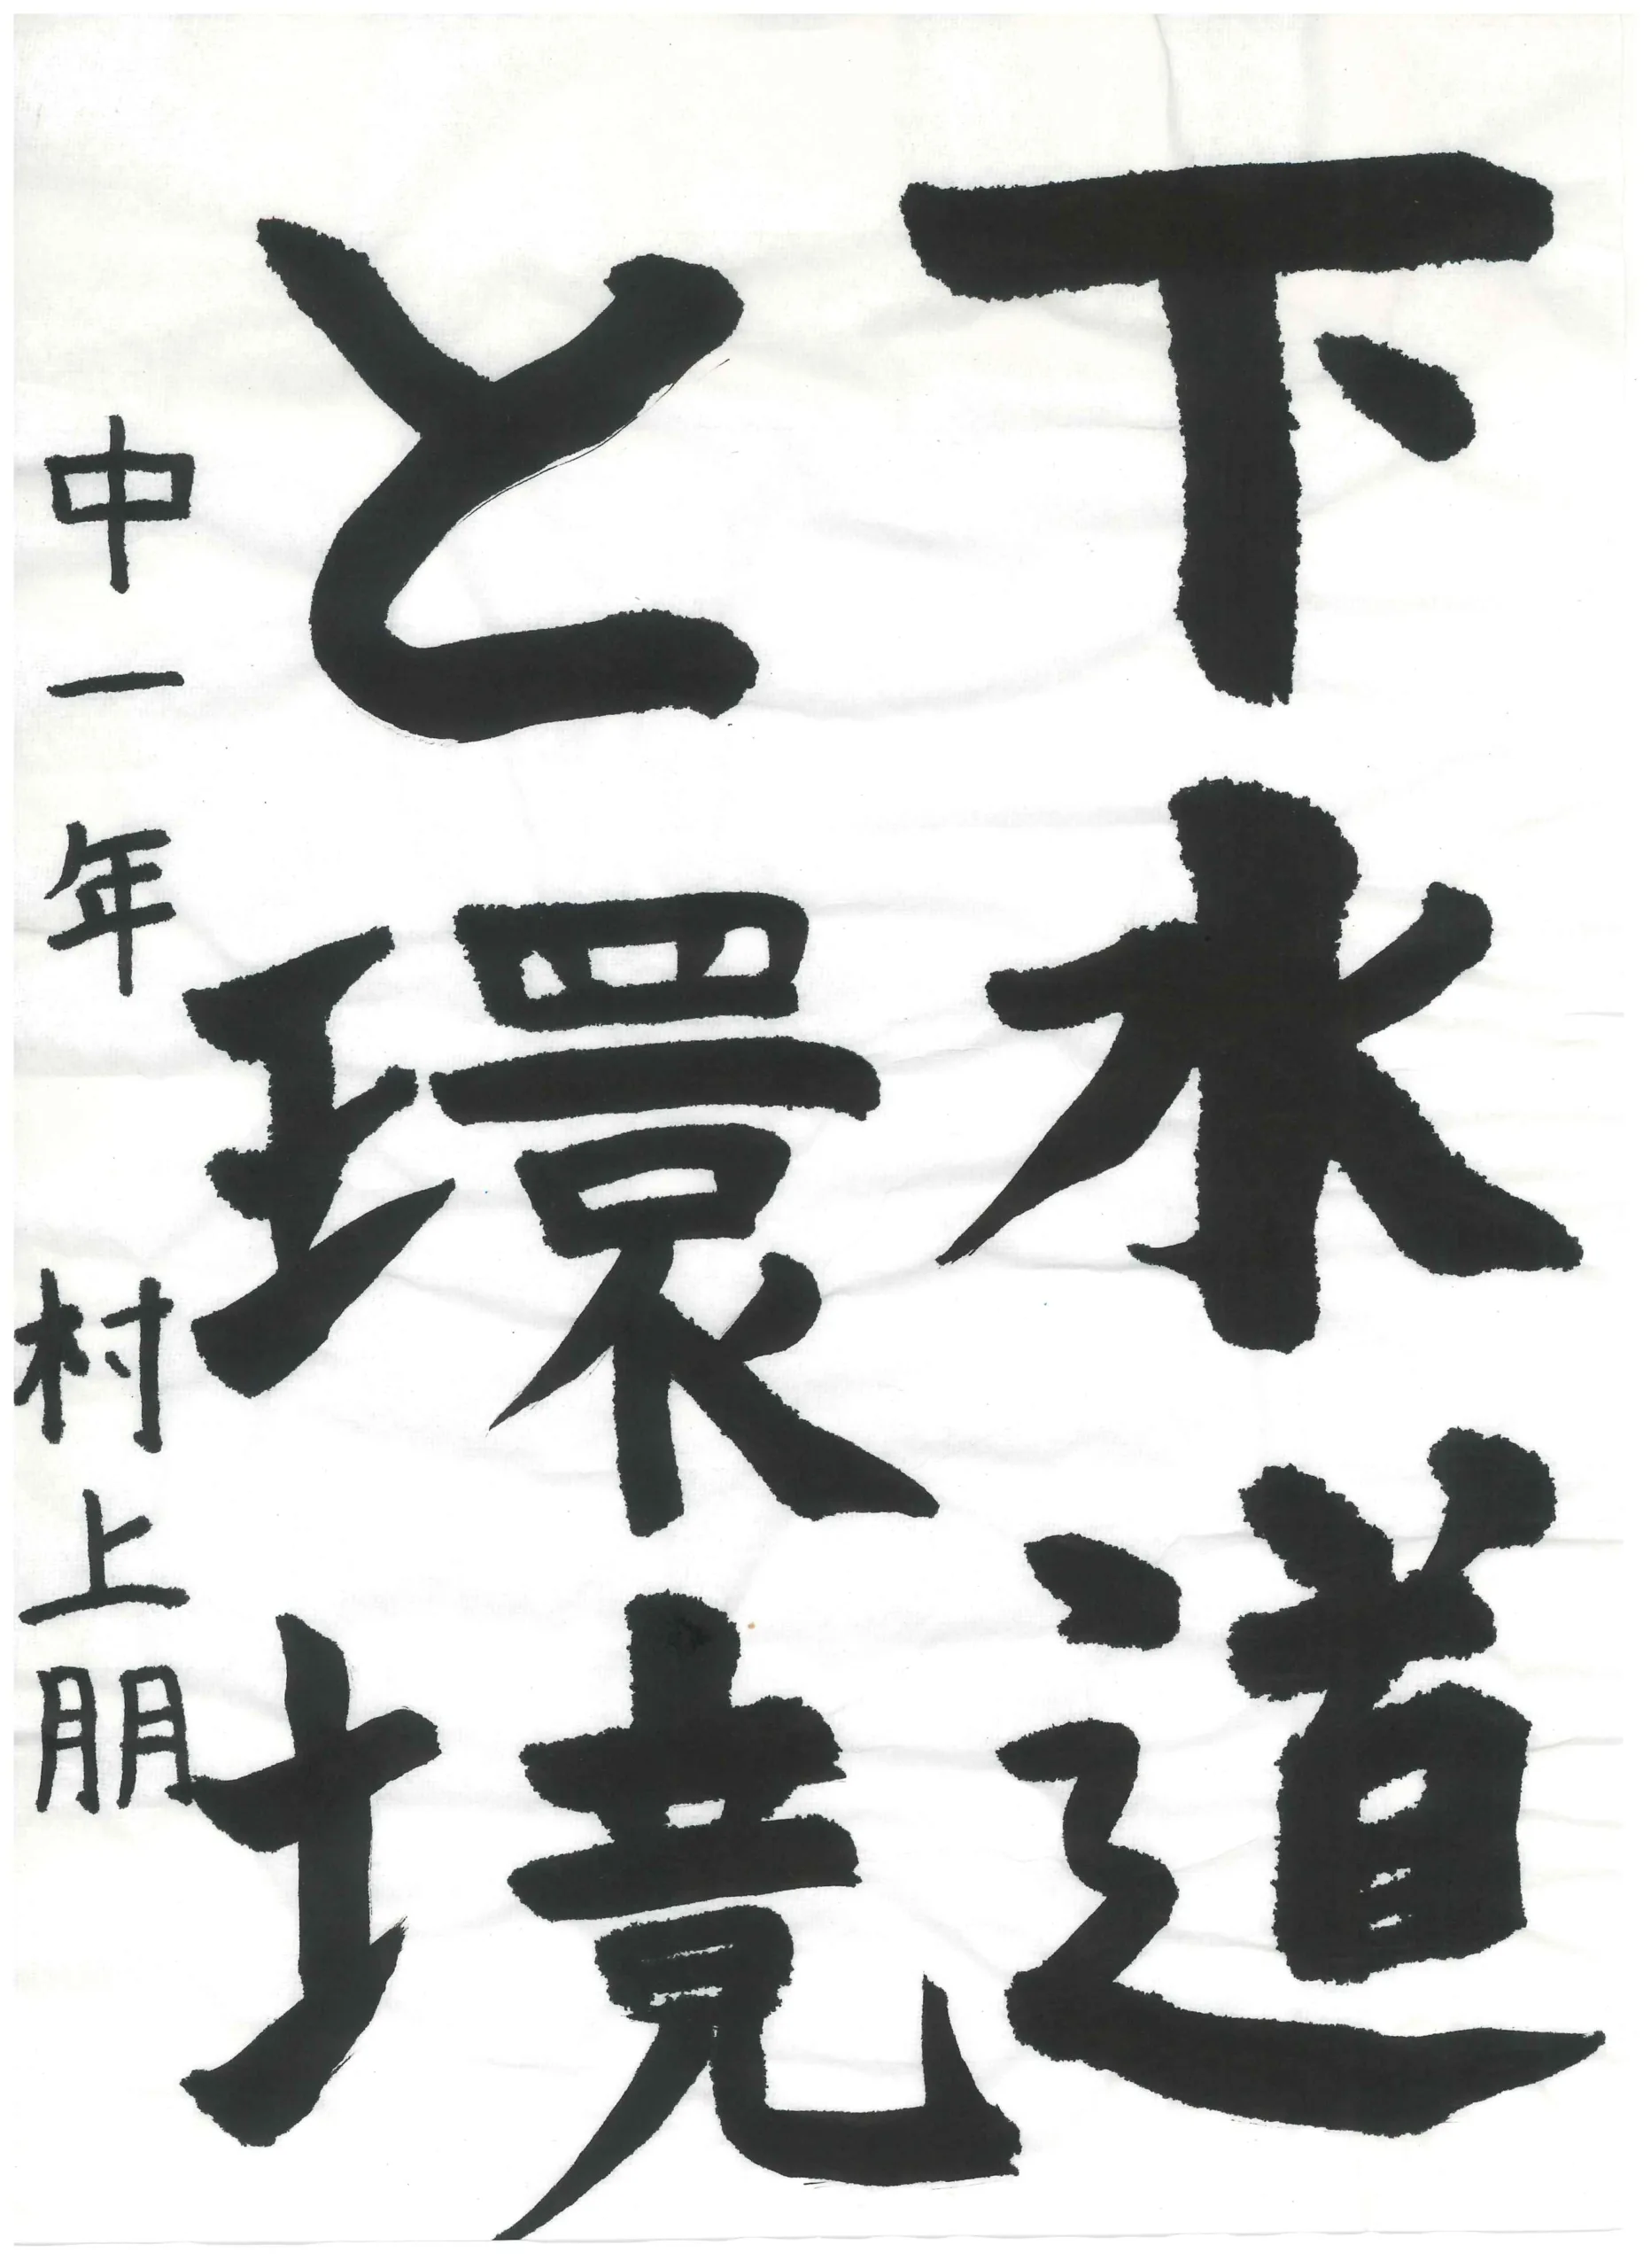 下水道
と環境
中一年 村上朋